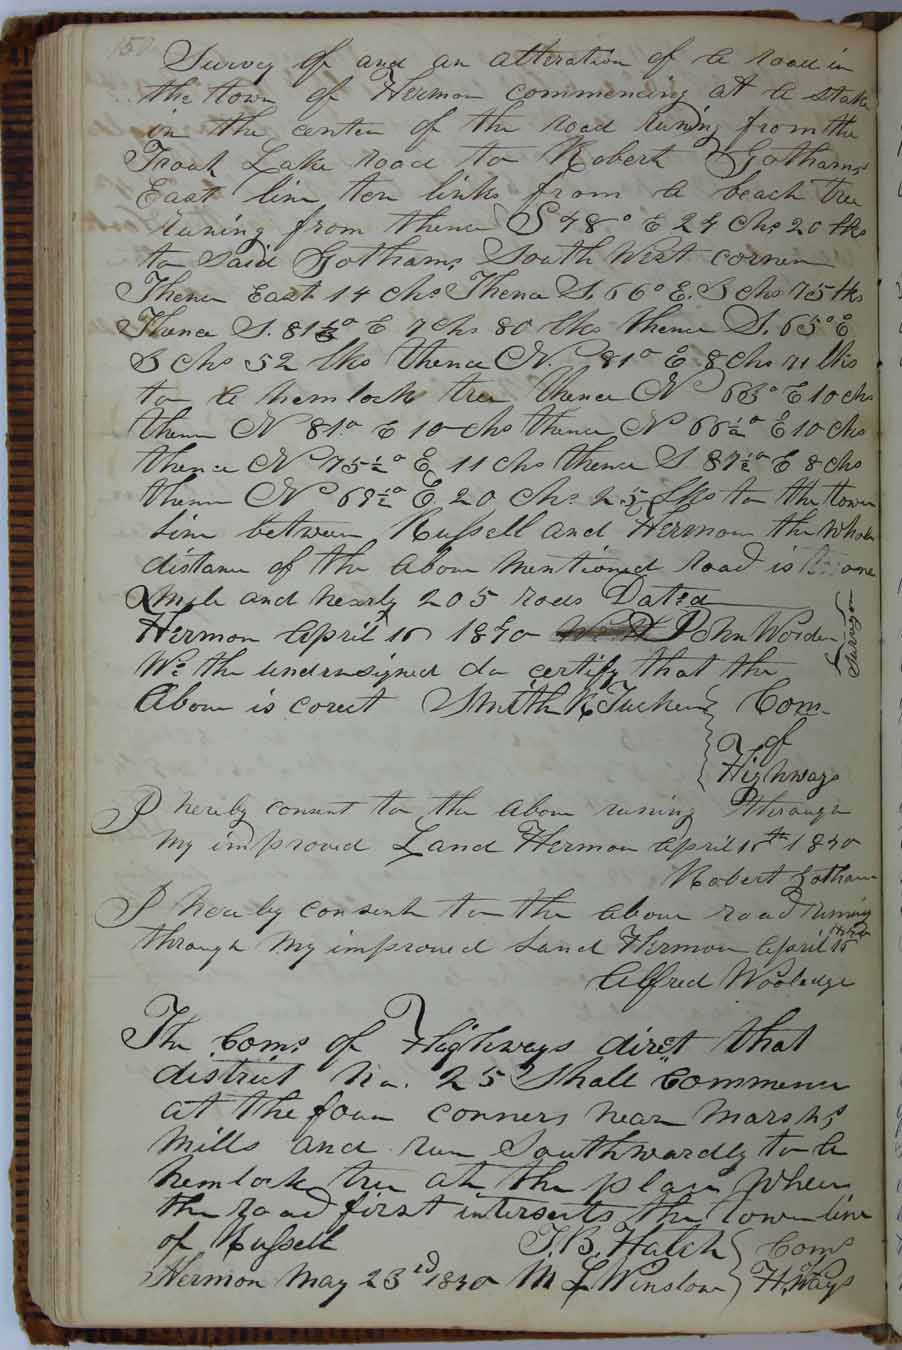 150
Survey of and an alteration of a road in
the town of Hermon commencing at a stake
in the center of the road runing from the
Trout Lake road to Robert Gothams
East line ten links from a beach tree
runing from thence S 48° E 24 chs 20 lks
to said Gothams South West corner
Thence East 14 chs Thence S. 66° E. 3 chs 75 lks
Thence S. 81½° E 7 chs 80 lks thence S. 65° E
3 chs 52 lks thence N. 81° E 8 chs 71 lks
to a hemlock tree thence N 63° E 10 chs
thence N 81° E 10 chs thence N 66½° E 10 chs
thence N 75½° E 11 chs thence S 87½° E 8 chs
thence N 69½° E 20 chs 25 lks to the town
line between Russell and Hermon the whole
distance of the above mentioned road is one
mile and nearly 205 rods Dated
Hermon April 16 1840 John Worden Surveyor
We the undersigned do certify that the
Above is corect Smith R Tucker Com
of
Highways
I hereby consent to the above runing through
my improved Land Hermon April 16th 1840
Robert Gotham
I hereby consent to the above road runing
through my improved Land Hermon April 16
Alfred Wooledge
The Coms of Highways direct that
district No. 25 Shall Commence
at the four corners near Marshs
Mills and run Southwardly to a
hemlock tree at the place where
the road first intersects the town line
of Russell T. B. Hatch Coms
of
Hermon May 23rd 1840 M L Winslow H,Ways